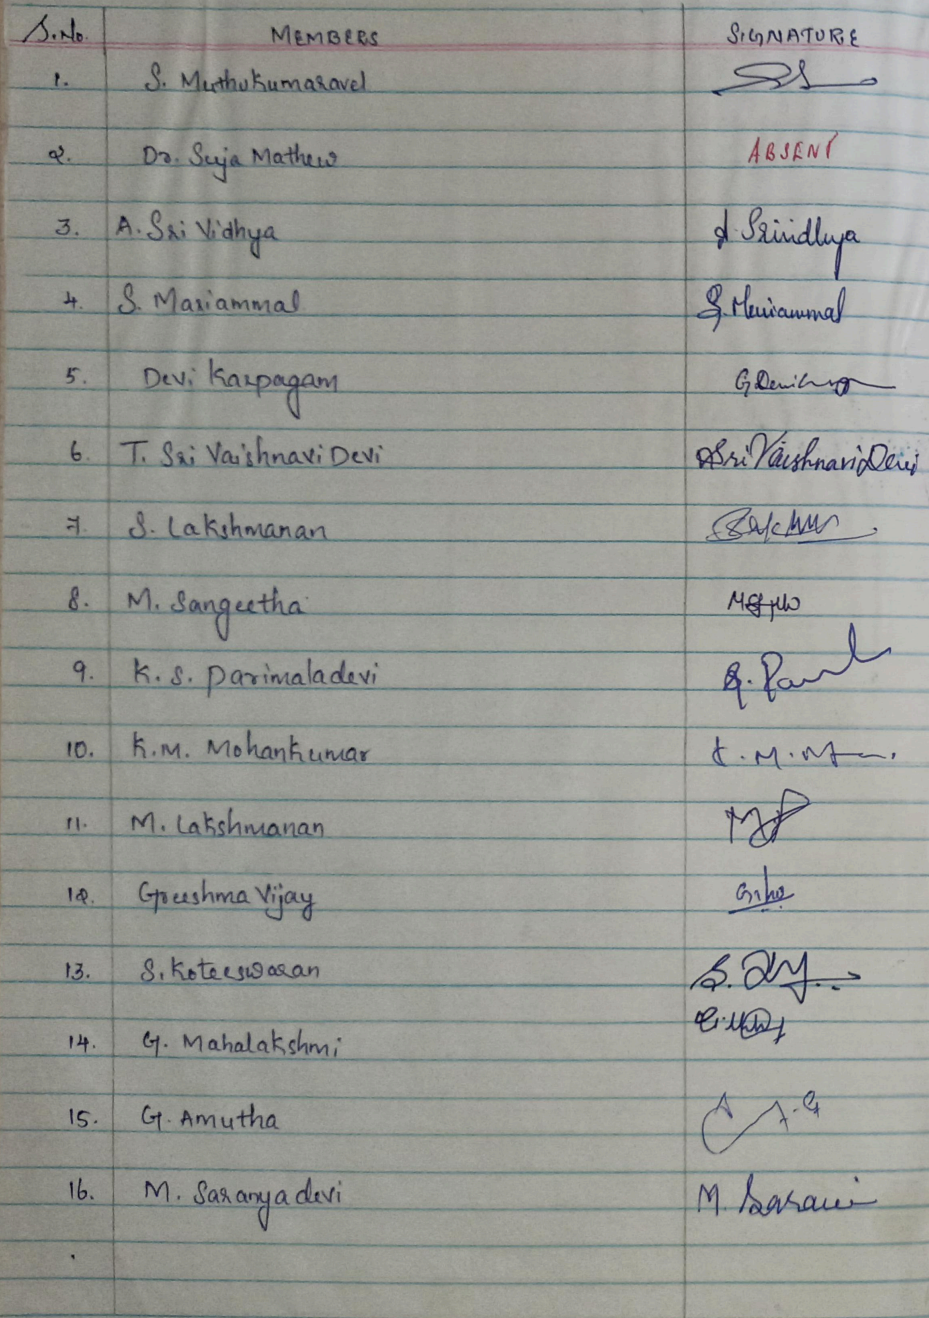 S.No. MEMBERS SIGNATURE
1. S. Muthukumaravel
2. Dr. Suja Mathew ABSENT
3. A. Sri Vidhya A. Srividhya
4. S. Mariammal S. Mariammal
5. Devi Karpagam
6. T. Sri Vaishnavi Devi Sri Vaishnavi Devi
7. S. Lakshmanan
8. M. Sangeetha
9. K. S. Parimaladevi
10. K.M. Mohankumar K.M.
11. M. Lakshmanan
12. Greeshma Vijay
13. S. Koteeswaran S.
14. G. Mahalakshmi
15. G. Amutha
16. M. Saranya devi M.